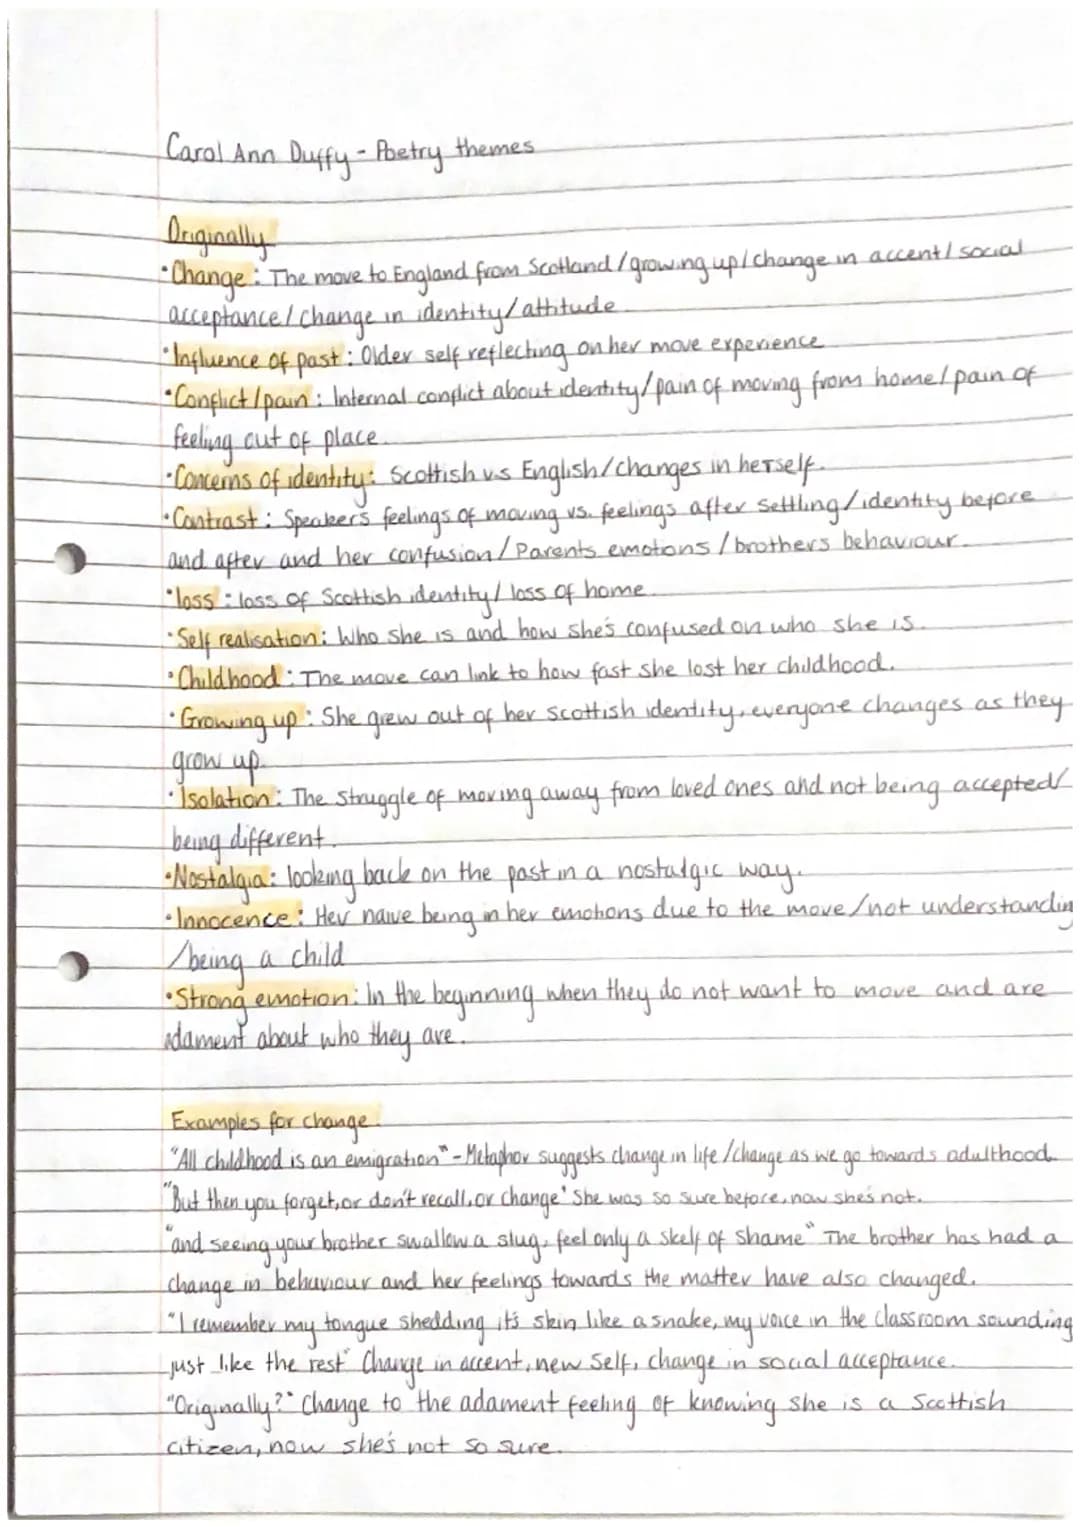 Carol Ann Duffy - Poetry themes
Originally
•Change: The move to England from Scotland/growing up/change in accent/social
acceptance/change in identity/attitude
•Influence of past: Older self reflecting on her move experience
•Conflict/pain: Internal conflict about identity/pain of moving from home/pain of
feeling out of place.
•Concerns of identity: Scottish v.s English/changes in herself.
•Contrast: Speakers feelings of moving vs. feelings after settling/identity before
and after and her confusion/Parents emotions/brothers behaviour.
•loss: loss of Scottish identity/loss of home
•Self realisation: Who she is and how she's confused on who she is.
•Childhood: The move can link to how fast she lost her childhood.
•Growing up: She grew out of her Scottish identity, everyone changes as they
grow up.
•Isolation: The struggle of moving away from loved ones and not being accepted/
being different.
•Nostalgia: looking back on the past in a nostalgic way.
•Innocence: Her naive being in her emotions due to the move/not understandin
/being a child
•Strong emotion: In the beginning when they do not want to move and are
adament about who they are.
Examples for change.
"All childhood is an emigration" - Metaphor suggests change in life/change as we go towards adulthood.
"But then you forget, or don't recall, or change" She was so sure before, now she's not.
"and seeing your brother swallow a slug, feel only a skelf of shame" The brother has had a
change in behaviour and her feelings towards the matter have also changed.
"I remember my tongue shedding it's skin like a snake, my voice in the classroom sounding
just like the rest" Change in accent, new self, change in social acceptance.
"Originally?" Change to the adament feeling of knowing she is a Scottish
citizen, now she's not so sure.